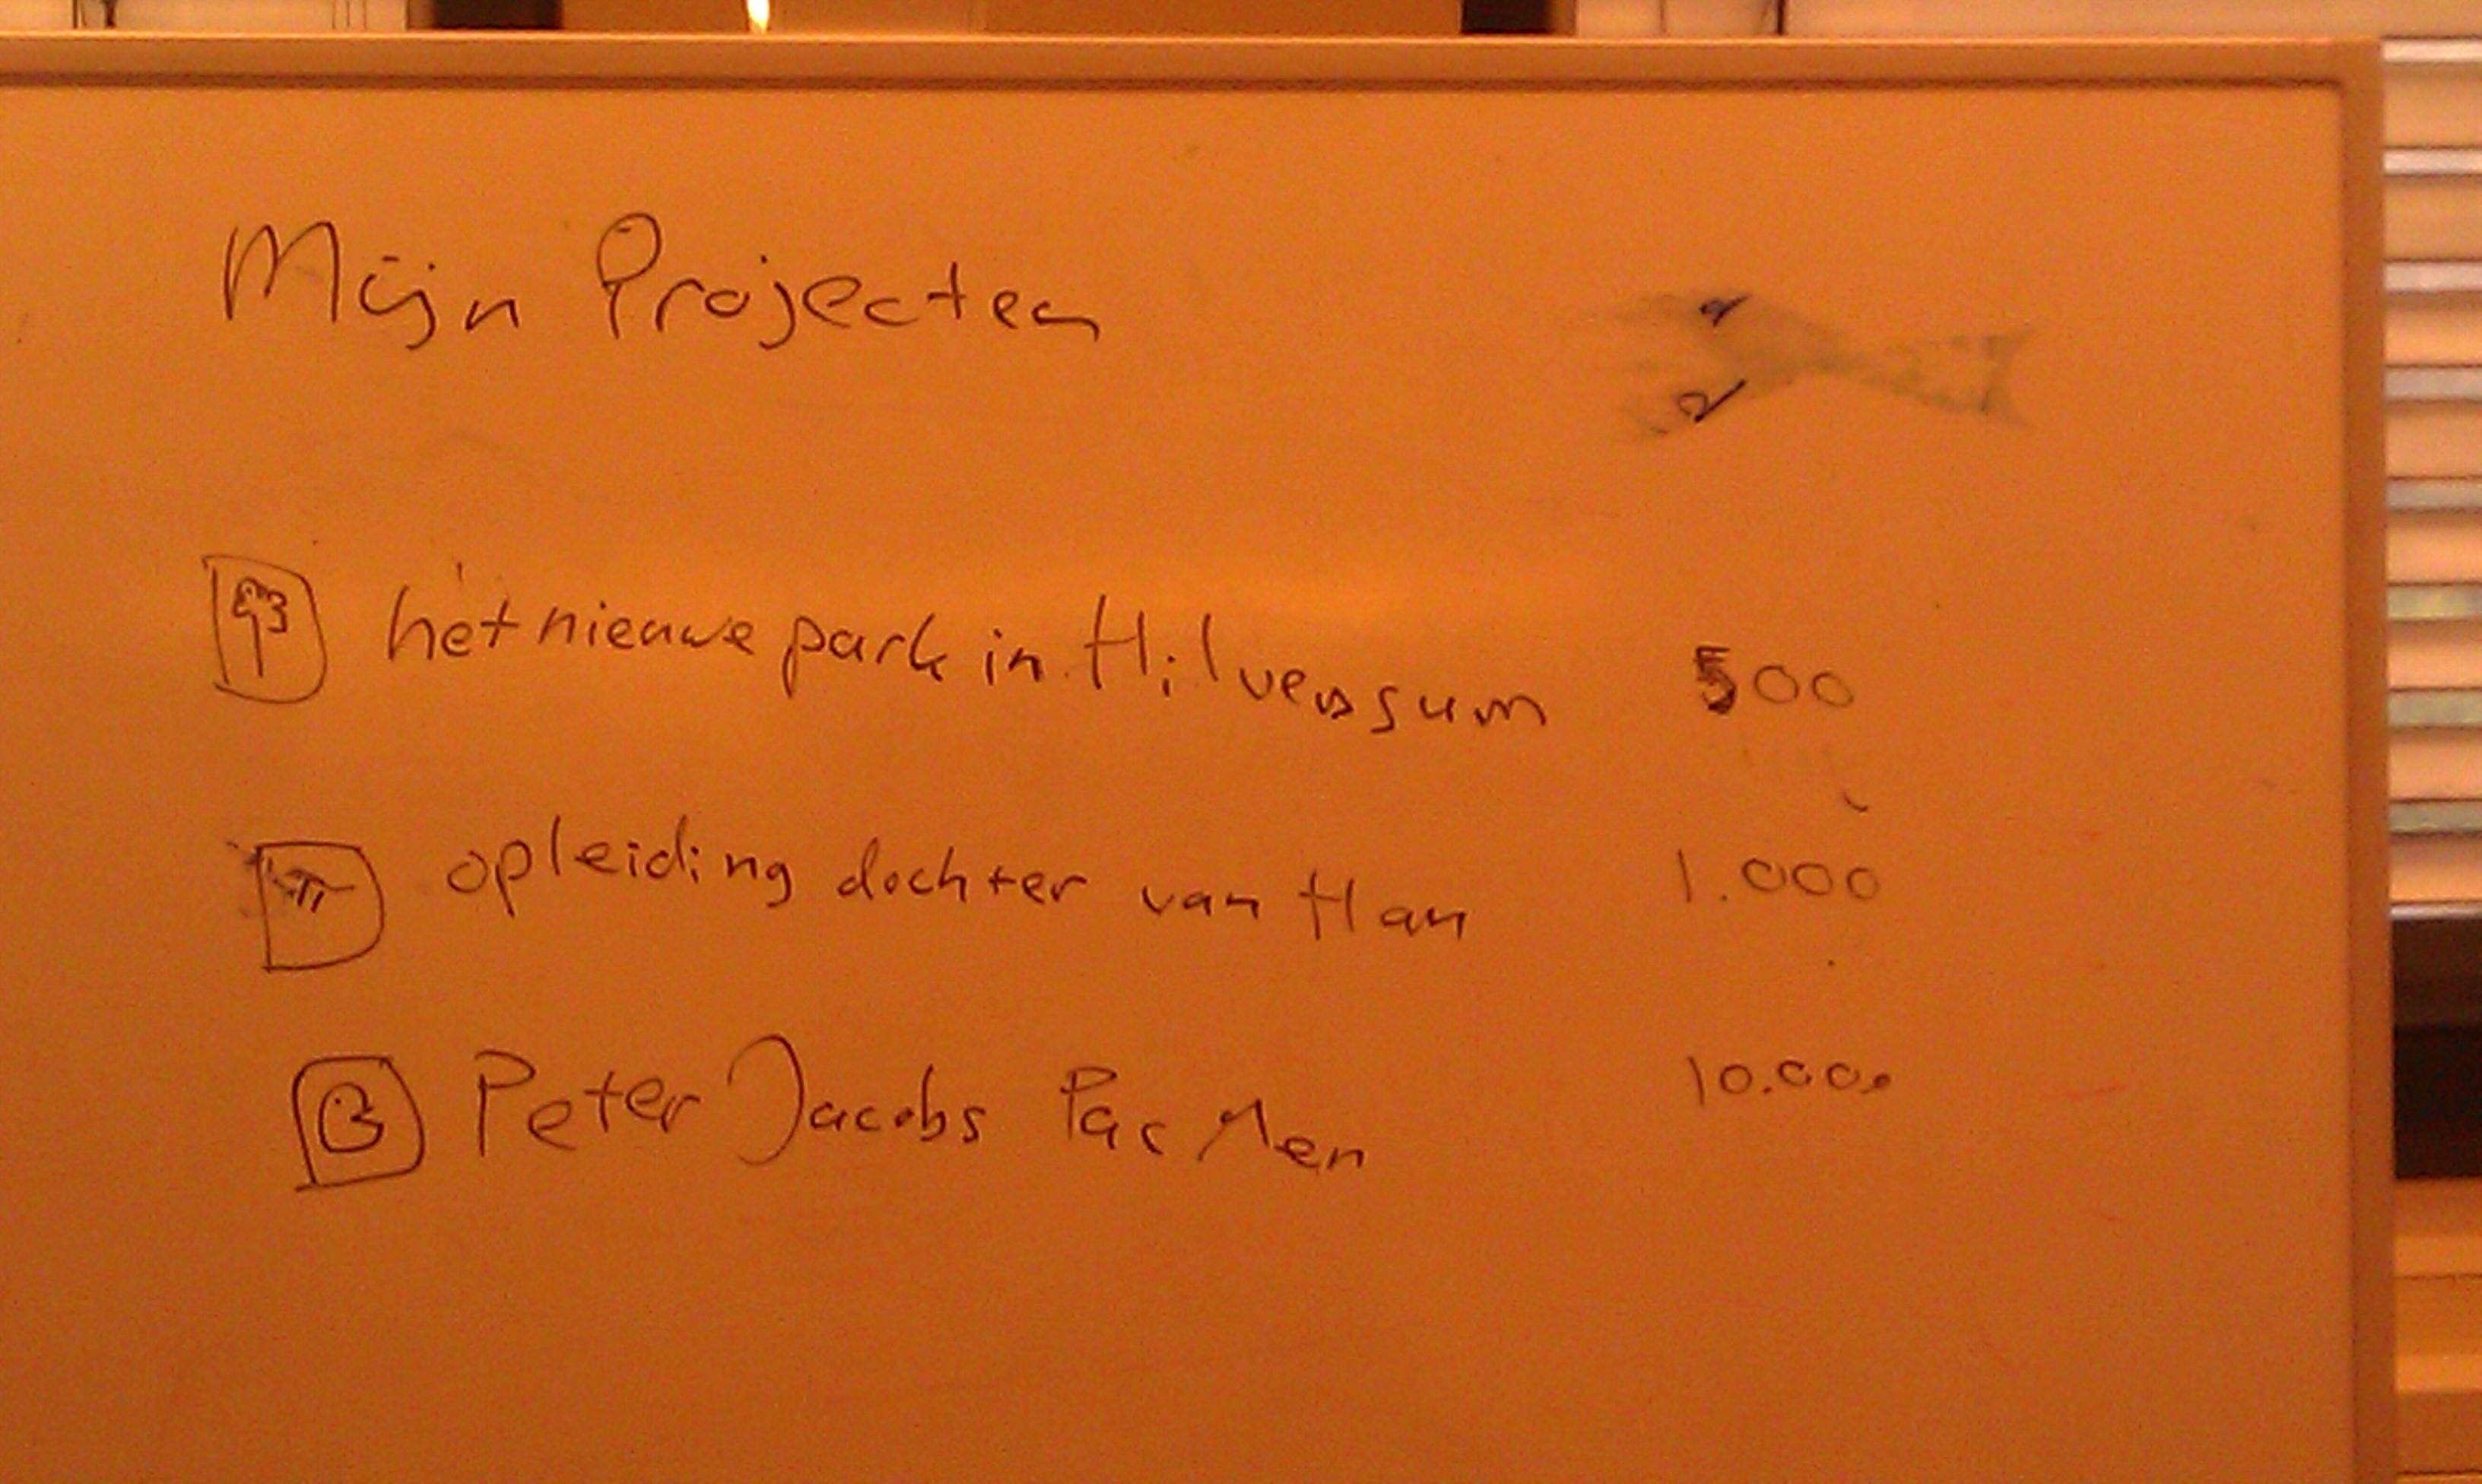 Mijn Projecten
het nieuwe park in Hilversum 500
opleiding dochter van Han 1.000
Peter Jacobs 10.000